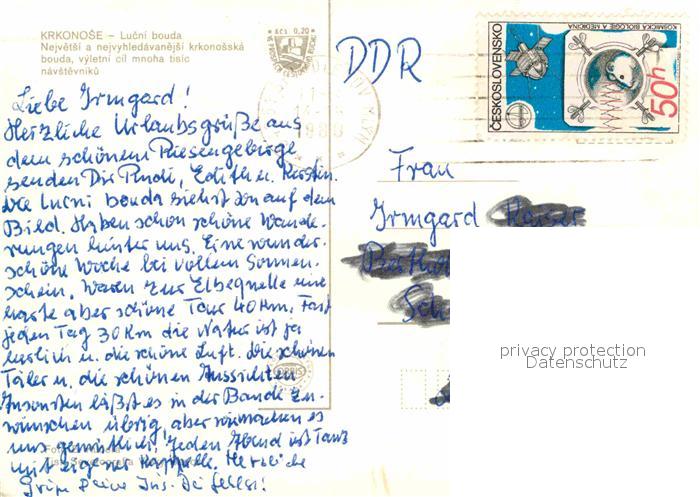 KRKONOŠE – Luční bouda
Největší a nejvyhledávanější krkonošská
bouda, výletní cíl mnoha tisíc
návštěvníků
Kčs 0,20
Liebe Irmgard!
Herzliche Urlaubsgrüße aus
dem schönem Riesengebirge
senden Dir Rudi, Edith u. Kerstin.
Die Lucni bouda siehst Du auf dem
Bild. Haben schon schöne Wande-
rungen hinter uns. Eine wunder-
schöne Woche bei vollem Sonnen-
schein. Waren zur Elbequelle eine
harte aber schöne Tour 40 Km. Fast
jeden Tag 30 Km die Natur ist ja
herrlich u. die schöne Luft. Die schönen
Täler u. die schönen Aussichten
Ansonsten läßt es in der Baude zu
wünschen übrig, aber wir machen es
uns gemütlich. Jeden Abend ist Tanz
mit eigener Kappelle. Herzliche
DDR
ČESKOSLOVENSKO
KOSMICKÁ BIOLOGIE A MEDICÍNA
50h
Frau
Irmgard
ORBIS
privacy protection
Datenschutz